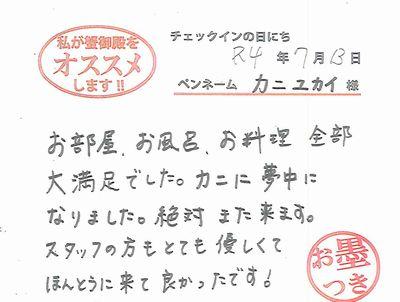 私が蟹御殿を
オススメ
します!!
チェックインの日にち
R4年7月13日
ペンネーム カニユカイ 様
お部屋、お風呂、お料理 全部
大満足でした。カニに夢中に
なりました。絶対 また来ます。
スタッフの方もとても優しくて
ほんとうに来て良かったです!
お墨
つき